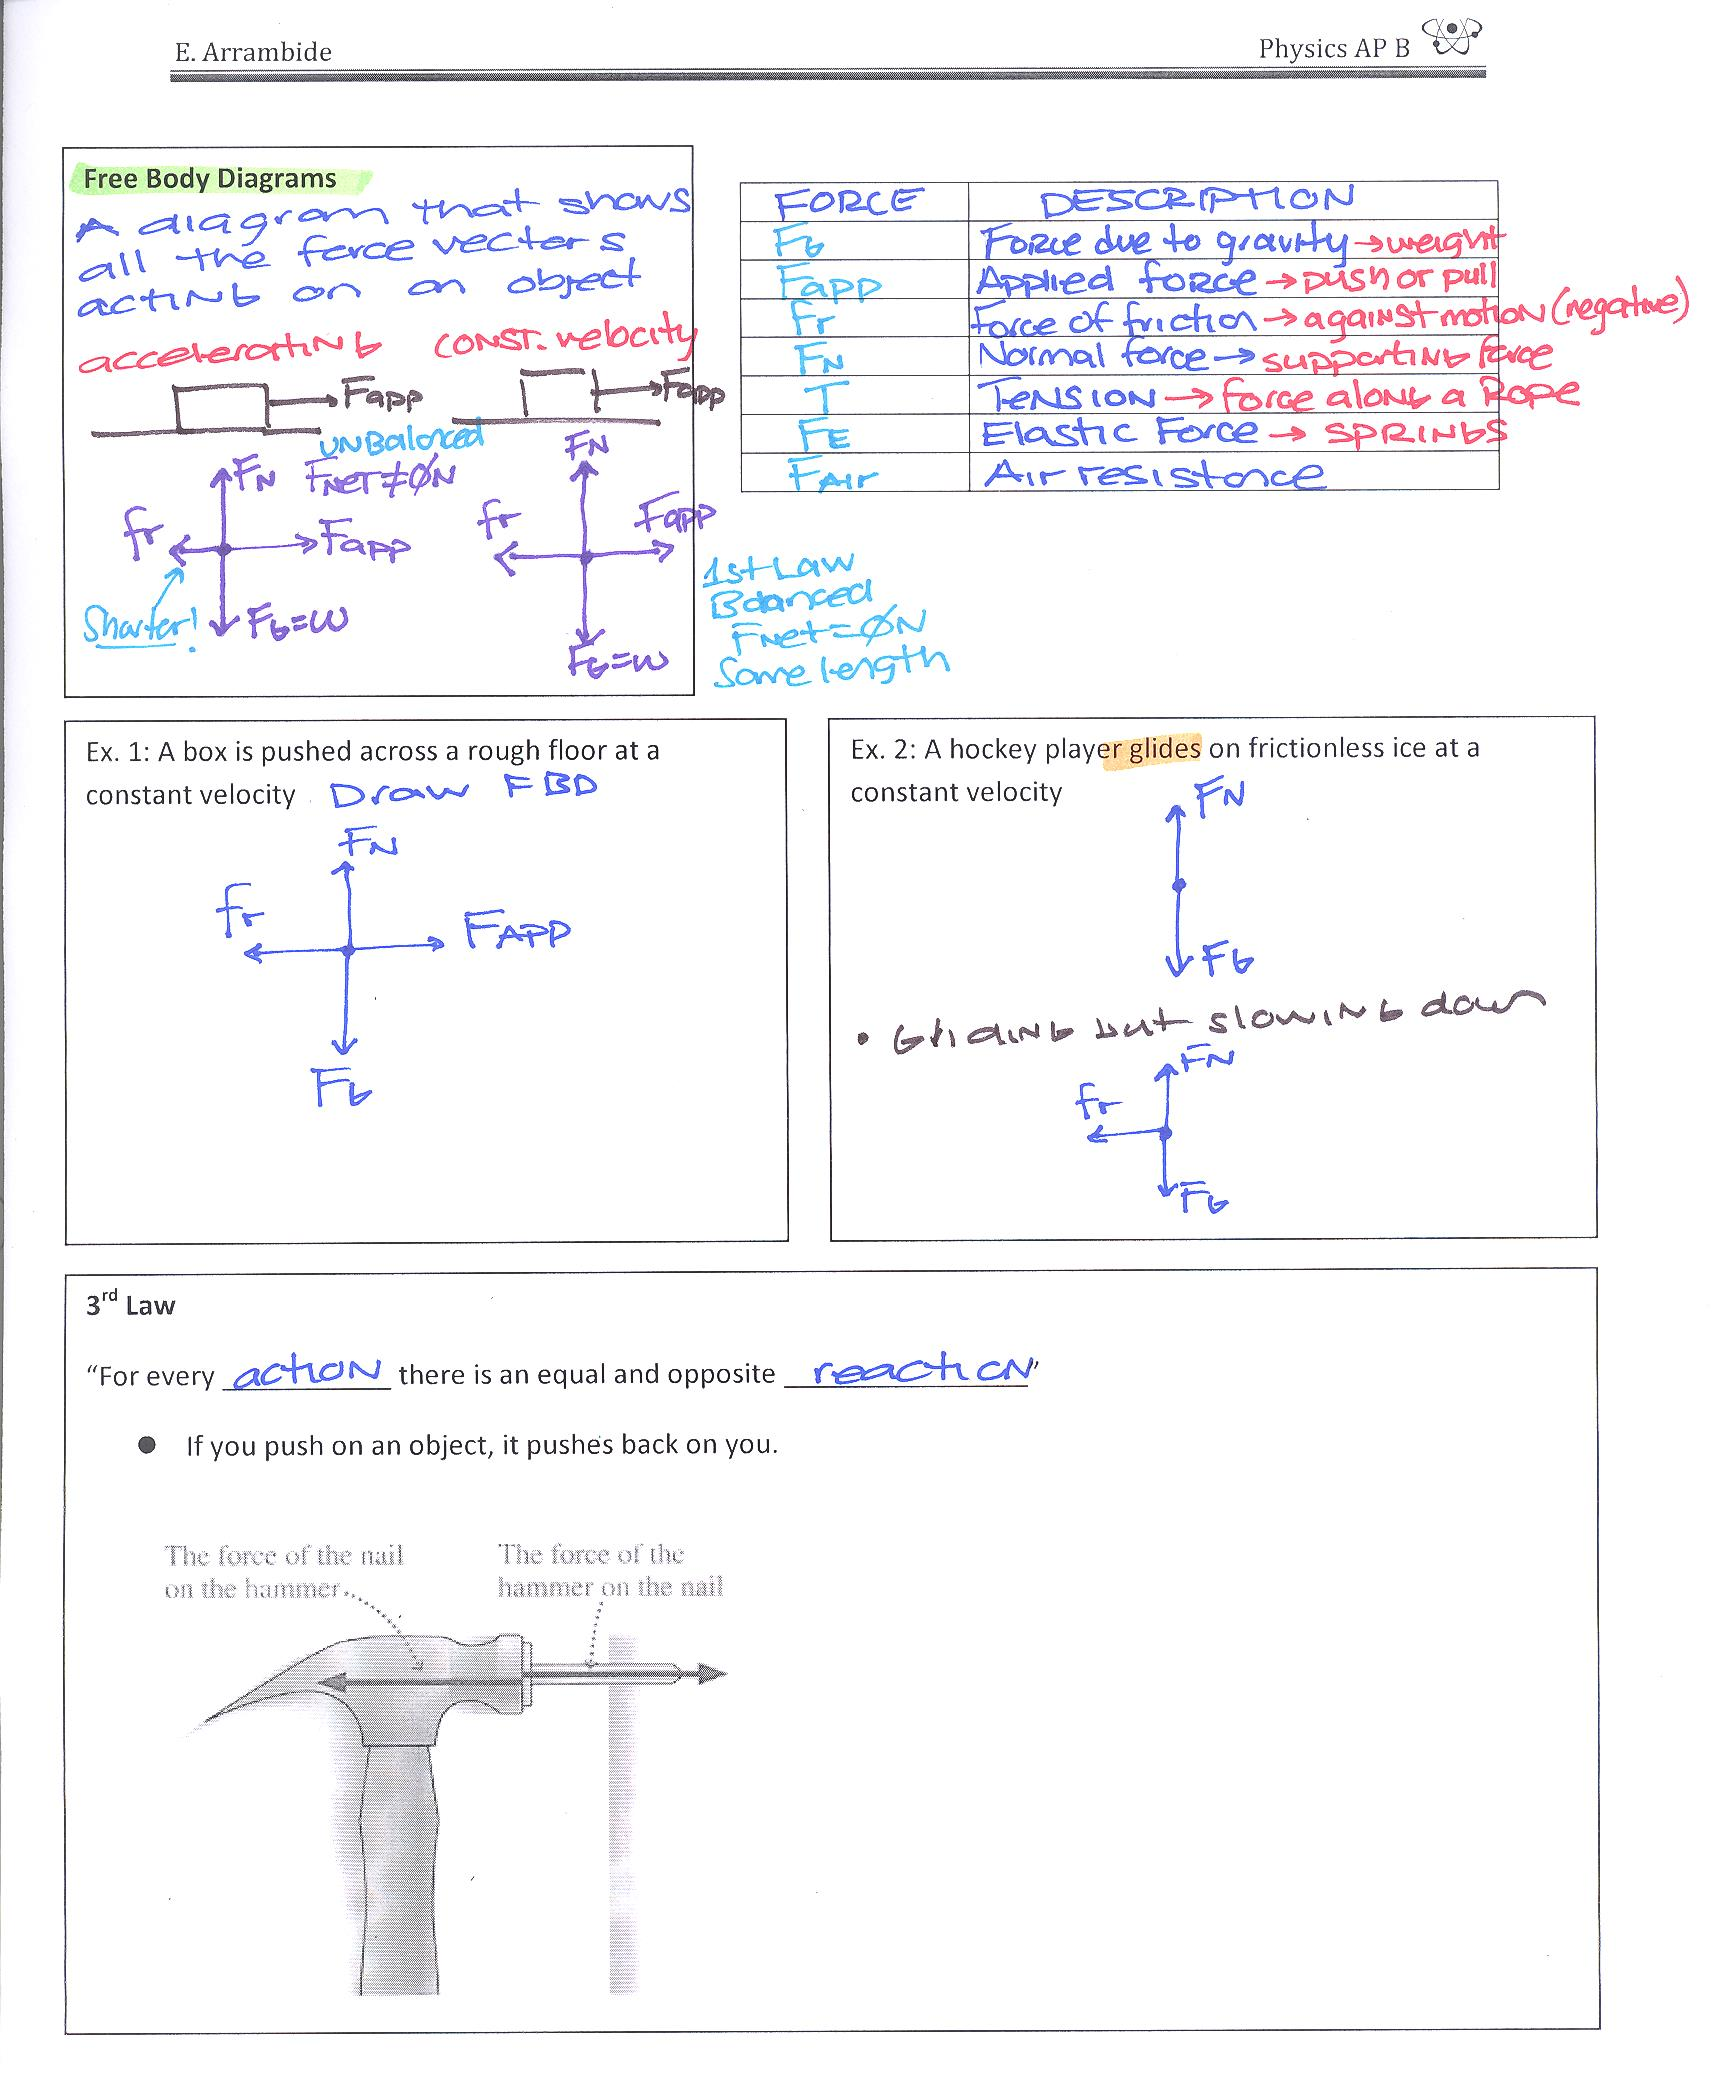 E. Arrambide
Physics AP B
Free Body Diagrams
A diagram that shows
all the force vectors
acting on an object
accelerating
const. velocity
Fapp
Fapp
UNBalanced
FNET≠ØN
FN
fr
Fapp
Shorter!
FG=W
FN
fr
Fapp
FG=W
1st Law
Balanced
FNet=ØN
Same length
FORCE DESCRIPTION
FG Force due to gravity→weight
Fapp Applied force→push or pull
fr Force of friction→against motion (negative)
FN Normal force→supporting force
T Tension→force along a Rope
FE Elastic Force→SPRINGS
FAir Air resistance
Ex. 1: A box is pushed across a rough floor at a
constant velocity . Draw FBD
FN
fr
FAPP
FG
Ex. 2: A hockey player glides on frictionless ice at a
constant velocity
FN
FG
• Gliding but slowing down
FN
fr
FG
3rd Law
“For every action there is an equal and opposite reaction”
● If you push on an object, it pushes back on you.
The force of the nail
on the hammer
The force of the
hammer on the nail